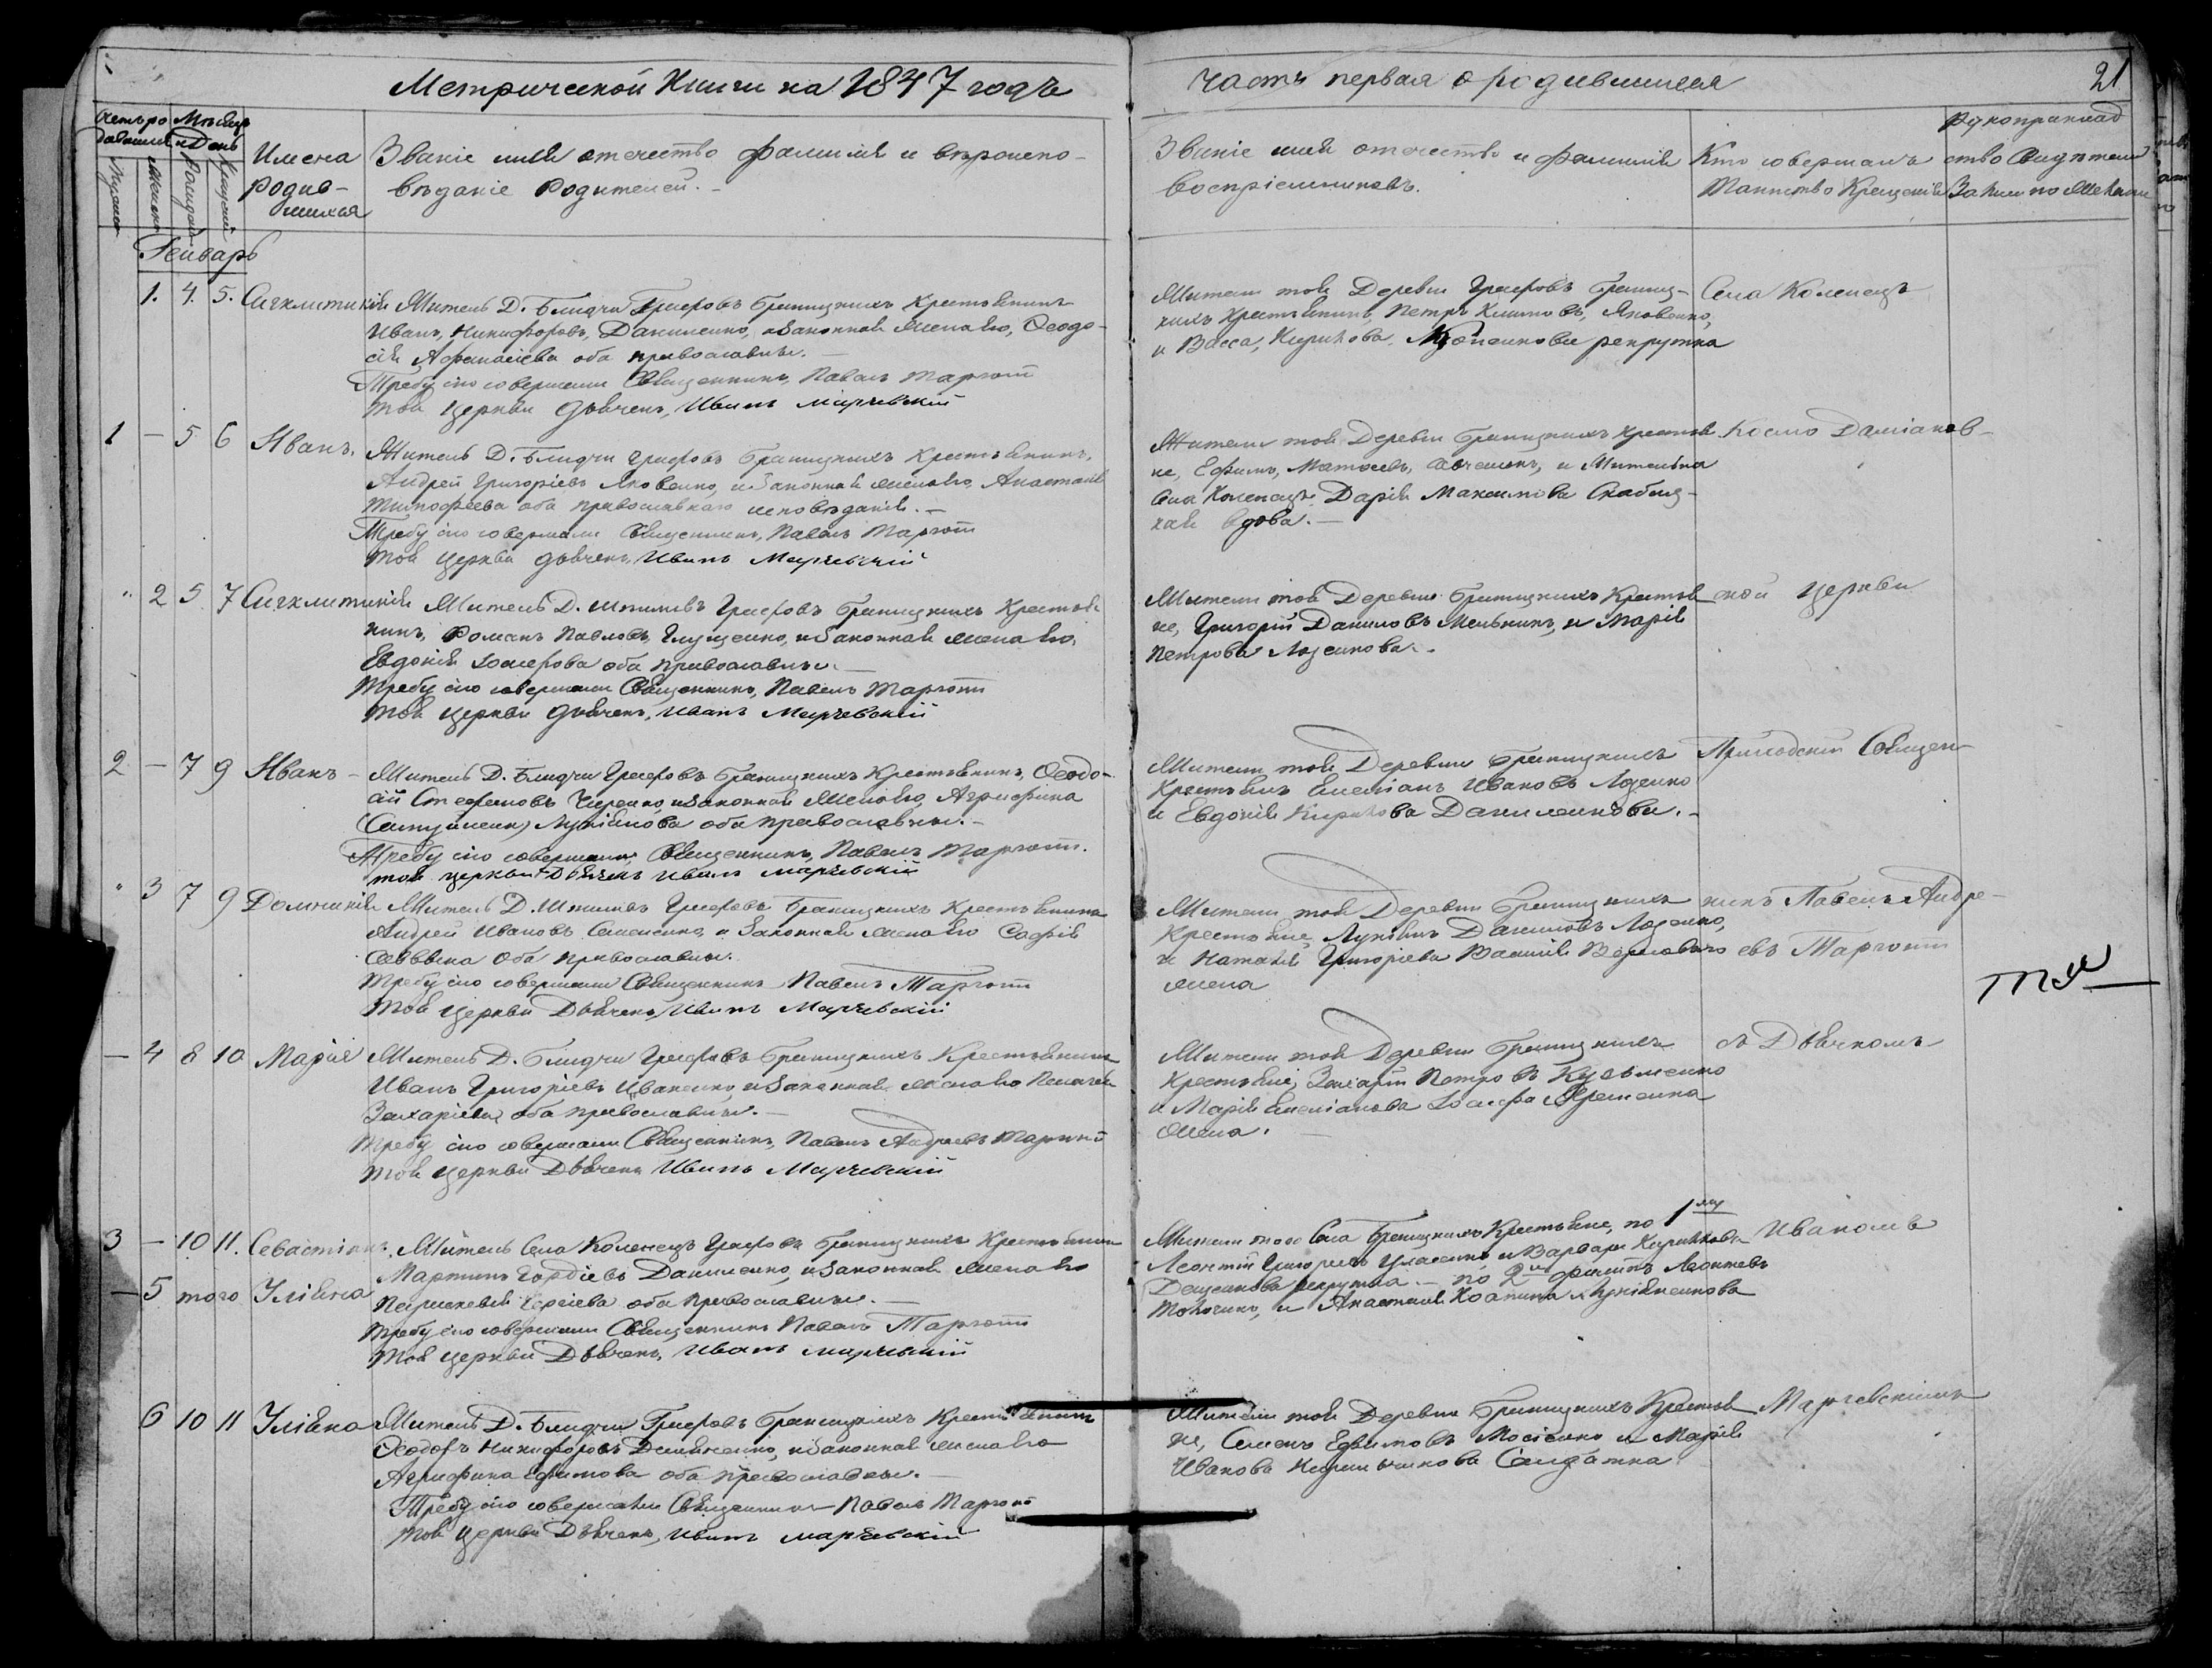 Метрической Книги на 1847 годъ
часть первая о родившихся
21
Счетъ ро
дившихся
Мѣсяцъ
и День
Имена
Родив-
шихся
Званіе имя отечество фамилія и вѣроиспо-
вѣданіе Родителей.-
Званіе имя отечество и фамилія
Воспріемниковъ.
Кто совершалъ
Таинство Крещенія
Рукоприклад
ство Свидѣтелей
Записи по Желанію
Генварь
1. 4. 5. Сигклитикія
Житель Д. Блидчи Графовъ Браницкихъ Крестьянинъ
Иванъ, Никифоровъ, Даниленко, и Законная жена его, Ѳеодо-
сія Афанасіева оба православные.-
Требу сію совершали Священникъ, Павелъ Маргот
той Церкви Дьячекъ, Иванъ Марчевскій
Жители той Деревни Графовъ Браниц-
кихъ Крестьянинъ, Петръ Климовъ, Яковенко,
и Васса, Кирилова, рекрутка
Села Коленецъ
1 - 5 6 Иванъ.
Житель Д. Блидчи Графовъ Браницкихъ Крестьянинъ,
Андрей Григоріевъ Яковенко, и Законная жена его, Анастасія
Тимофеева оба православнаго исповѣданія.-
Требу сію совершали Священникъ, Павелъ Маргот
той Церкви Дьячекъ, Иванъ Марчевскій
Жители той Деревни Браницкихъ Крестья
не, Ефимъ, Матвеевъ, и Жителька
Села Коленецъ Дарія Максимова Скабиц-
кая вдова.-
Космо Даміанов-
" 2 5 7 Сигклитикія
Житель Д. Графовъ Браницкихъ Крестья
нинъ, Романъ Павловъ, Глущенко, и Законная жена его,
Евдокія Іосифова оба православные.-
Требу сію совершали Священникъ, Павелъ Маргот
той Церкви Дьячекъ, Иванъ Марчевскій
Жители той Деревни Браницкихъ Крестья
не, Григорій Даниловъ Мельникъ, и Марія
Петрова Лозенкова.-
ской Церкви
2 - 7 9 Иванъ-
Житель Д. Блидчи Графовъ Браницкихъ Крестьянинъ, Ѳеодо-
сій Стефановъ и Законная Жена его, Агрифина
Лукіянова оба православные.-
Требу сію совершали Священникъ, Павелъ Маргот.
той Церкви Дьячекъ Иванъ Марчевскій
Жители той Деревни Браницкихъ
Крестьяне Емеліанъ Ивановъ Лозенко
и Евдокія Кирилова Даниленкова.-
Приходскій Священ-
" 3 7 9 Домникія
Житель Д. Графовъ Браницкихъ Крестьянинъ
Андрей Ивановъ Симоненко, и Законная жена его Софія
Саввына Оба православные.
Требу сію совершали Священникъ Павелъ Маргот
той Церкви Дьячекъ, Иванъ Марчевскій
Жители той Деревни Браницкихъ
Крестьяне, Лукіянъ Даниловъ Лозенко,
и Наталія Григоріева Василія
жена
никъ Павелъ Андре-
евъ Маргот
- 4 8 10 Марія
Житель Д. Блидчи Графовъ Браницкихъ Крестьянинъ
Иванъ Григоріевъ Иваненко, и Законная жена его Пелагея
Захаріева оба православные.-
Требу сію совершали Священникъ, Павелъ Андреевъ Маргот
той Церкви Дьячекъ Иванъ Марчевскій
Жители той Деревни Браницкихъ
Крестьяне, Захарій Петровъ Кузьменко
и Марія Емеліанова Іосифа
жена.
съ Дьячкомъ
3 - 10 11. Севастіанъ,
- 5 того Уліяна
Житель Села Коленецъ Графовъ Браницкихъ Крестьянинъ
Мартинъ Гордіевъ Даниленко, и Законная Жена его
Параскевія Сергіева оба Православные.-
Требу сію совершали Священникъ Павелъ Маргот
той Церкви Дьячекъ, Иванъ Марчевскій
Жители того Села Браницкихъ Крестьяне, по 1му
Леонтій Григоріевъ и Варвара Кирилкова
рекрутка.- по 2му Филипъ Леонтіевъ
и Анастасія
Иваномъ
6 10 11 Уліяна
Житель Д. Блидчи Графовъ Браницкихъ Крестьянинъ
Ѳеодоръ Никифоровъ Демьяненко, и Законная жена его
Агрифина Ефимова оба православные.-
Требу сію совершали Священникъ Павелъ Маргот
той Церкви Дьячекъ, Иванъ Марчевскій
Жители той Деревни Браницкихъ Крестья
не, Семенъ Ефимовъ и Марія
Иванова Солдатка
Марчевскимъ